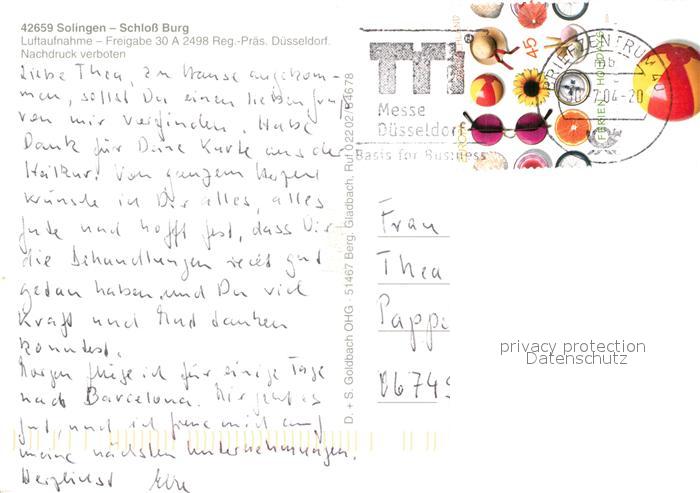 42659 Solingen – Schloß Burg
Luftaufnahme – Freigabe 30 A 2498 Reg.-Präs. Düsseldorf.
Nachdruck verboten
Liebe Thea, zu Hause angekom-
men, sollst Du einen lieben Gruß
von mir vorfinden. Habe
Dank für Deine Karte aus der
Heilkur. Von ganzem Herzen
wünsche ich Dir alles, alles
Gute und hoffe fest, dass Dir
die Behandlungen recht gut
getan haben und Du viel
Kraft und Mut tanken
konntest.
Morgen fliege ich für einige Tage
nach Barcelona. Mir geht es
gut, und ich freue mich auf
meine nächsten Unternehmungen.
Herzlichst
D. + S. Goldbach OHG · 51467 Berg. Gladbach. Ruf 02202/84678
Messe
Düsseldorf
Basis for Business
45
FERIEN HOLIDAYS
BRIEFZENTRUM
04-20
Frau
Thea
Pappe
06749
privacy protection
Datenschutz